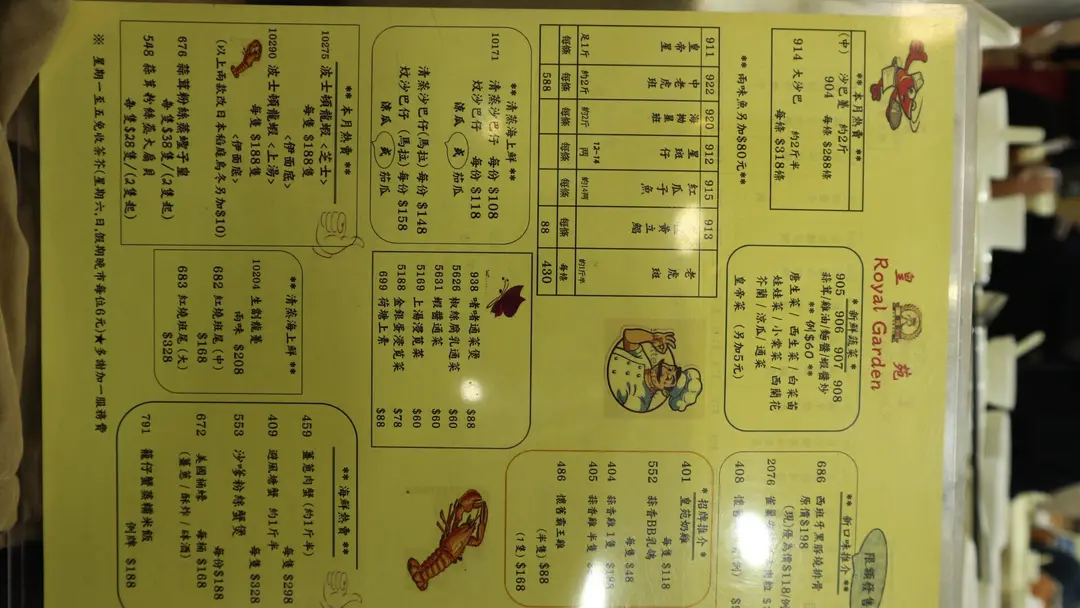 皇苑
Royal Garden
** 本月熱賣 **
(中) 沙巴躉 約2斤
904 每條 $288條
914 大沙巴 約2斤半
每條 $318條
** 兩味魚另加$80元 **
* 新鮮蔬菜 *
905 906 907 908
蒜茸/雞油/麵醬/蝦醬炒
** 例$60 **
唐生菜 / 西生菜 / 白菜苗
娃娃菜 / 小棠菜 / 西蘭花
芥蘭 / 涼瓜 / 通菜
皇帝菜 (另加5元)
限額發售
** 新口味推介 **
686 西班牙黑豚燒排骨
原價$198
(現)優惠價$118/例
2076
408
911 922 920 912 915 913
皇帝星 中老虎斑 海拋星斑 星斑仔 紅瓜子魚 黃立鯧 老虎斑
足1斤 約2斤 約2斤 12-14兩 約14兩 約1斤半
每條 每條 每條 每條 每條 每條 每條
588 88 430
* 招牌推介 *
401 皇苑奶雞
每隻 $118
552 蒜香BB乳鴿
每隻 $48
404 蒜香雞 1隻 $188
405 蒜香雞半隻
486 懷舊霸王雞
(半隻) $88
(1隻) $168
** 清蒸海上鮮 **
1017 清蒸沙巴仔 每份 $108
炆沙巴仔 每份 $118
涼瓜 或 茄瓜
清蒸沙巴仔(馬拉) 每份 $148
炆沙巴仔 (馬拉) 每份 $158
涼瓜 或 茄瓜
938 啫啫通菜煲 $88
5626 椒絲腐乳通菜 $60
5631 蝦醬通菜 $60
5169 上湯浸莧菜 $60
5188 金銀蛋浸莧菜 $78
699 荷塘上素 $88
** 本月熱賣 **
10275 波士頓龍蝦 <芝士>
每隻 $188隻
<伊面底>
10290 波士頓龍蝦 <上湯>
每隻 $188隻
<伊面底>
(以上兩款改日本稻庭烏冬另加$10)
676 蒜茸粉絲蒸蟶子皇
每隻$38隻/(2隻起)
548 蒜茸粉絲蒸大扇貝
每隻$28隻/(2隻起)
** 清蒸海上鮮 **
10204 生劏龍躉
兩味 $208
682 紅燒斑尾 (中)
$168
683 紅燒斑尾 (大)
$328
** 海鮮熱賣 **
459 薑蔥肉蟹 (約1斤半)
每隻 $298
409 避風塘蟹 約1斤半
每隻 $328
553 沙嗲粉絲蟹煲
每份$188
672 美國桶蠔 每桶 $168
(薑蔥 / 酥炸 / 砵酒)
791 籠仔蟹蒸糯米飯
例牌 $188
※ 星期一至五免收茶芥(星期六,日,假期晚市每位6元)★多謝加一服務費